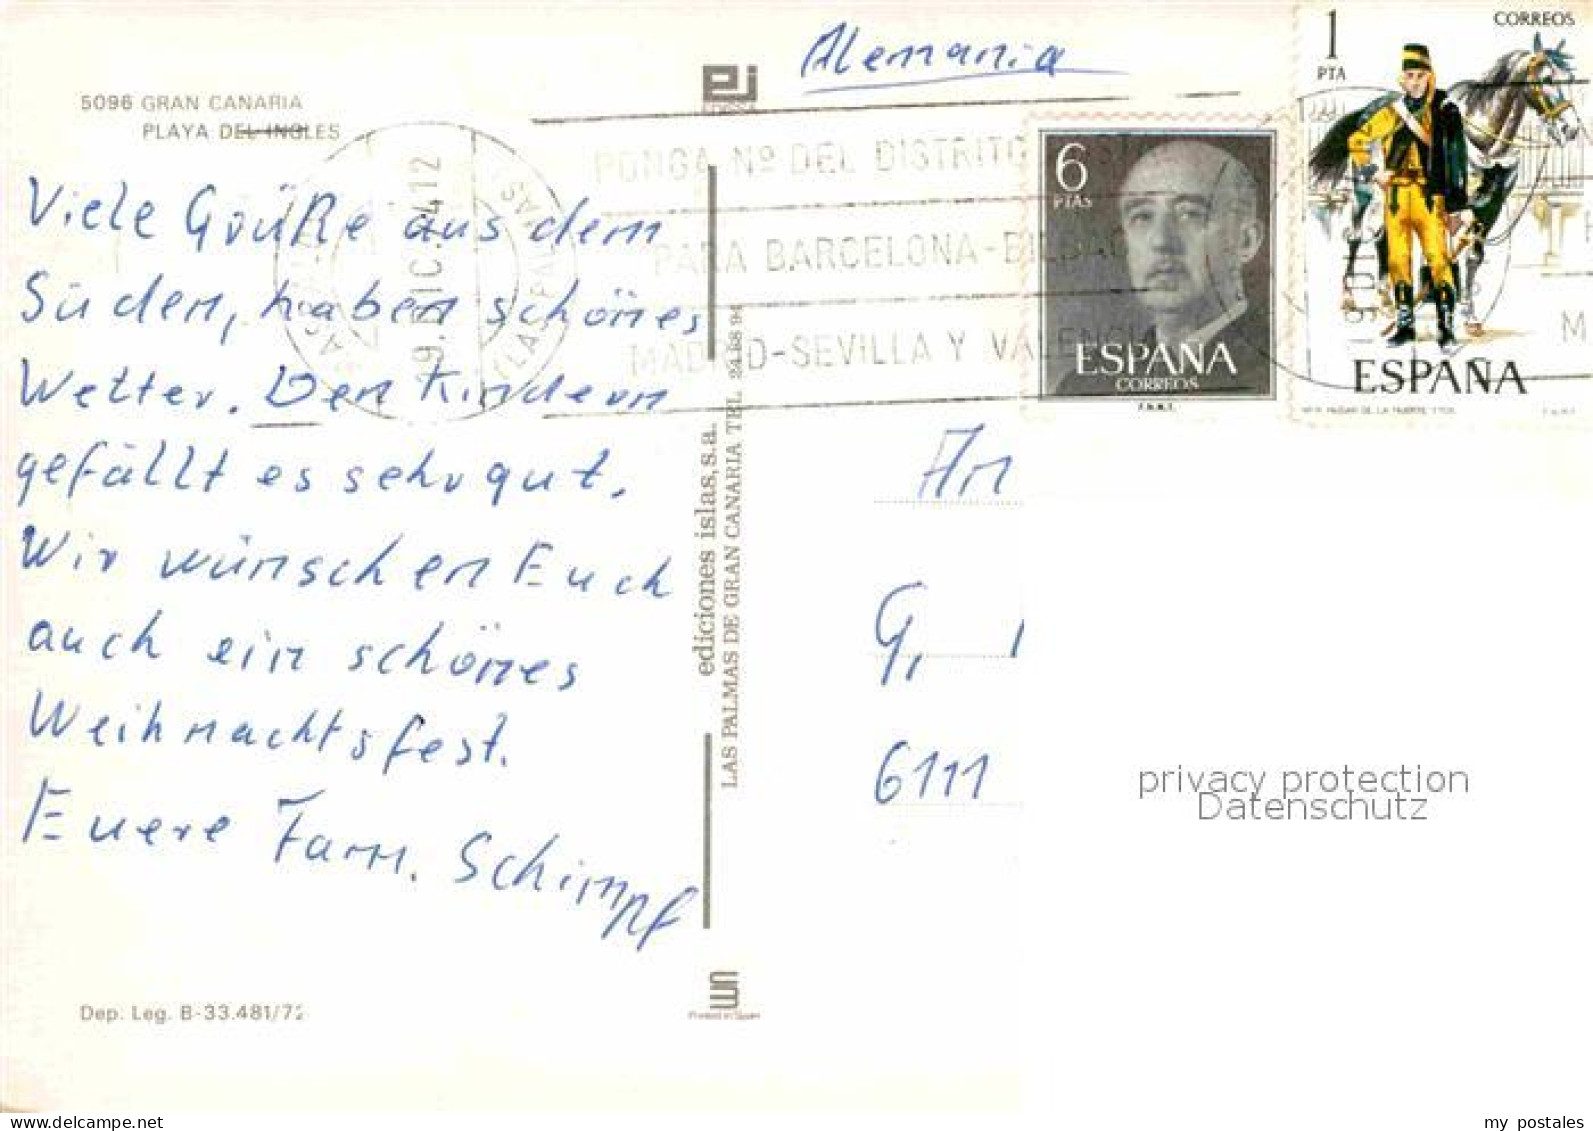 Alemania
1
PTA
CORREOS
ESPAÑA
6
PTAS
ESPAÑA
CORREOS
F.N.M.T.
5096 GRAN CANARIA
PLAYA DEL INGLES
PONGA Nº DEL DISTRITO
PARA BARCELONA-BILBAO
MADRID-SEVILLA Y VALENCIA
Viele Grüße aus dem
Süden, haben schönes
Wetter. Den Kindern
gefällt es sehr gut.
Wir wünschen Euch
auch ein schönes
Weihnachtsfest.
Euere Fam. Schimpf
ediciones islas, s.a.
LAS PALMAS DE GRAN CANARIA TEL.
An
G,
6111
privacy protection
Datenschutz
Dep. Leg. B-33.481/72
Printed in Spain
my postales